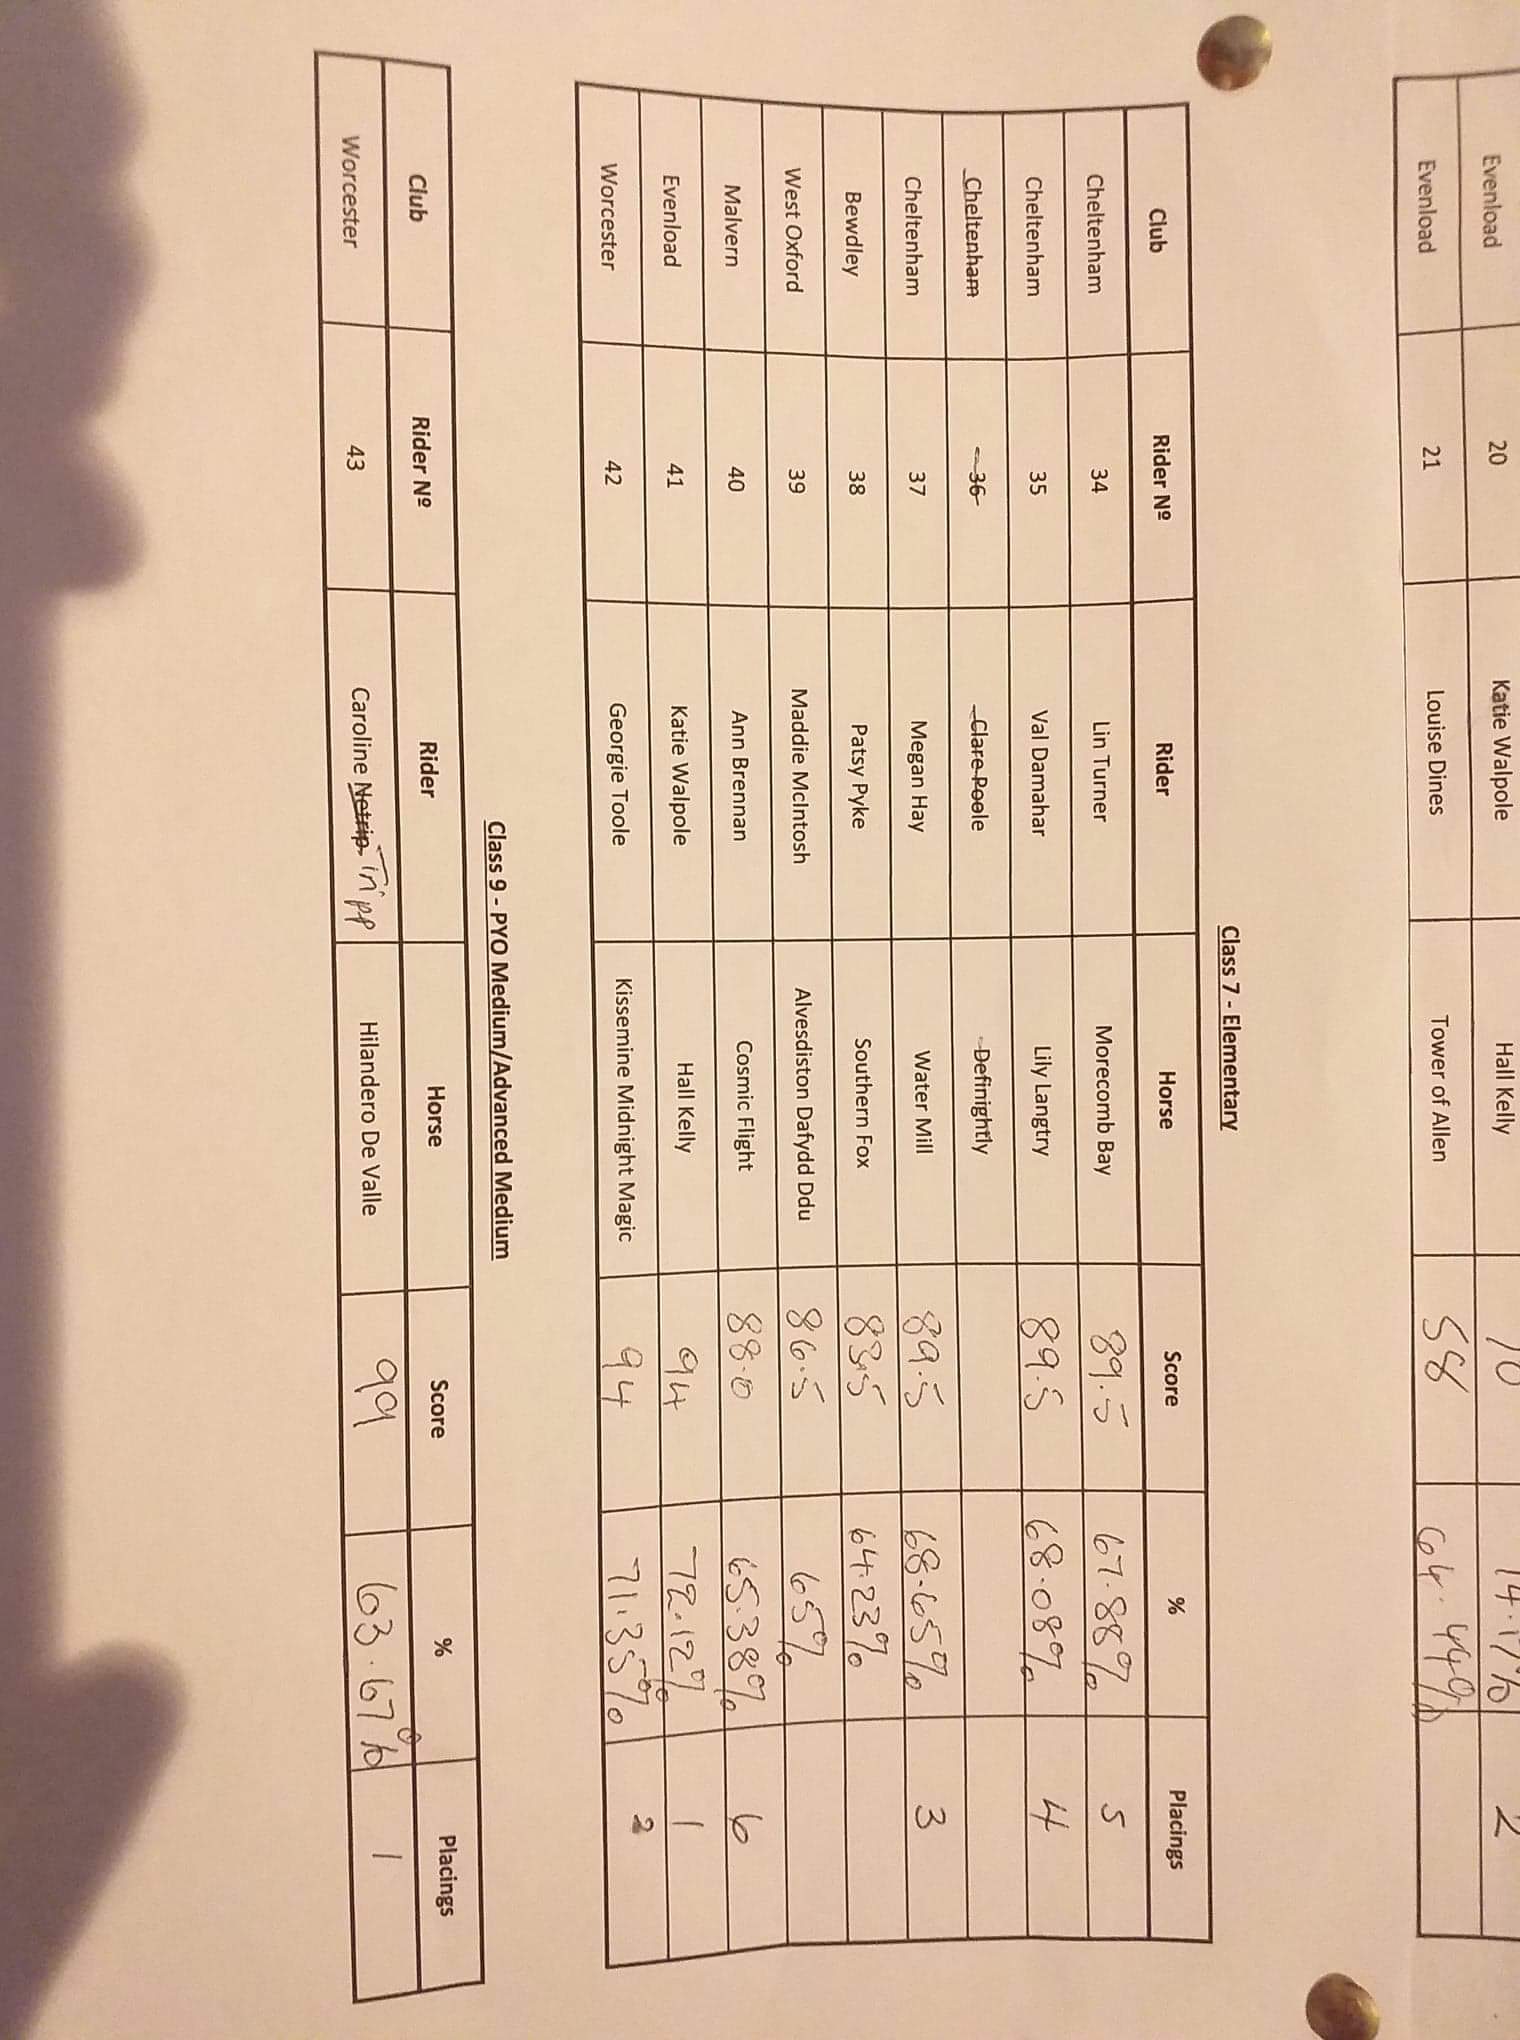 Evenload 20 Katie Walpole Hall Kelly 2
Evenload 21 Louise Dines Tower of Allen 58 64.44%
Class 7 - Elementary
Club Rider Nº Rider Horse Score % Placings
Cheltenham 34 Lin Turner Morecomb Bay 89.5 67.88% 5
Cheltenham 35 Val Damahar Lily Langtry 89.5 68.08% 4
Cheltenham 36 Clare Poole Definightly
Cheltenham 37 Megan Hay Water Mill 89.5 68.65% 3
Bewdley 38 Patsy Pyke Southern Fox 83.5 64.23%
West Oxford 39 Maddie McIntosh Alvesdiston Dafydd Ddu 86.5 65%
Malvern 40 Ann Brennan Cosmic Flight 88.0 65.38% 6
Evenload 41 Katie Walpole Hall Kelly 94 72.12% 1
Worcester 42 Georgie Toole Kissemine Midnight Magic 94 71.35% 2
Class 9 - PYO Medium/Advanced Medium
Club Rider Nº Rider Horse Score % Placings
Worcester 43 Caroline Netrip Tripp Hilandero De Valle 99 63.67% 1